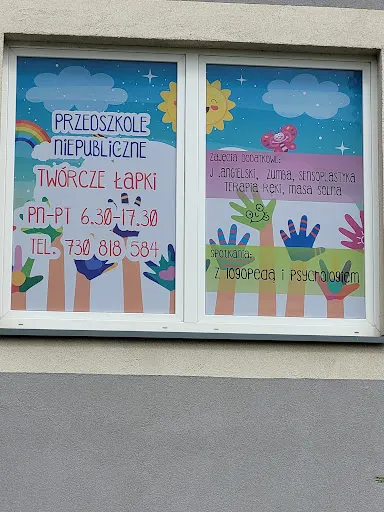 PRZEDSZKOLE
NIEPUBLICZNE
TWÓRCZE ŁAPKI
PN-PT 6.30-17.30
TEL. 730 818 584
ZAJĘCIA DODATKOWE:
J .ANGIELSKI, ZUMBA, SENSOPLASTYKA
TERAPIA RĘKI, MASA SOLNA
SPOTKANIA:
Z LOGOPEDĄ I PSYCHOLOGIEM